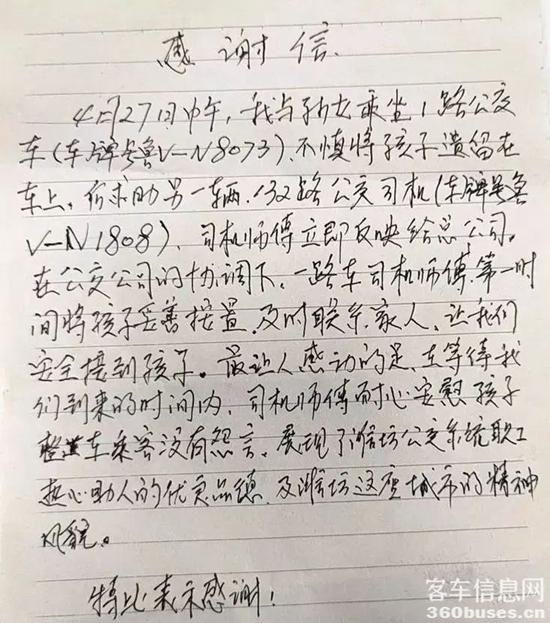 感谢信
4月27日中午，我与孙女乘坐1路公交
车(车牌号鲁V-N8073)、不慎将孩子遗留在
车上、求助另一辆、132路公交司机(车牌号鲁
V-N1808)、司机师傅立即反映给总公司。
在公交公司的协调下、一路车司机师傅、第一时
间将孩子妥善接置、及时联系家人、让我们
安全接到孩子。最让人感动的是、在等待我
们到来的时间内、司机师傅耐心安慰孩子
整车乘客没有怨言、展现了潍坊公交系统职工
热心助人的优良品德、及潍坊这座城市的精神
风貌。
特此表示感谢！
客车信息网
360buses.cn